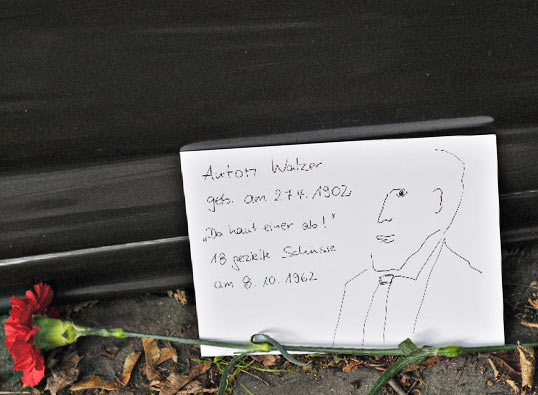 Anton Walzer
geb. am 27.4.1902
„Da haut einer ab!"
18 gezielte Schüsse
am 8.10.1962